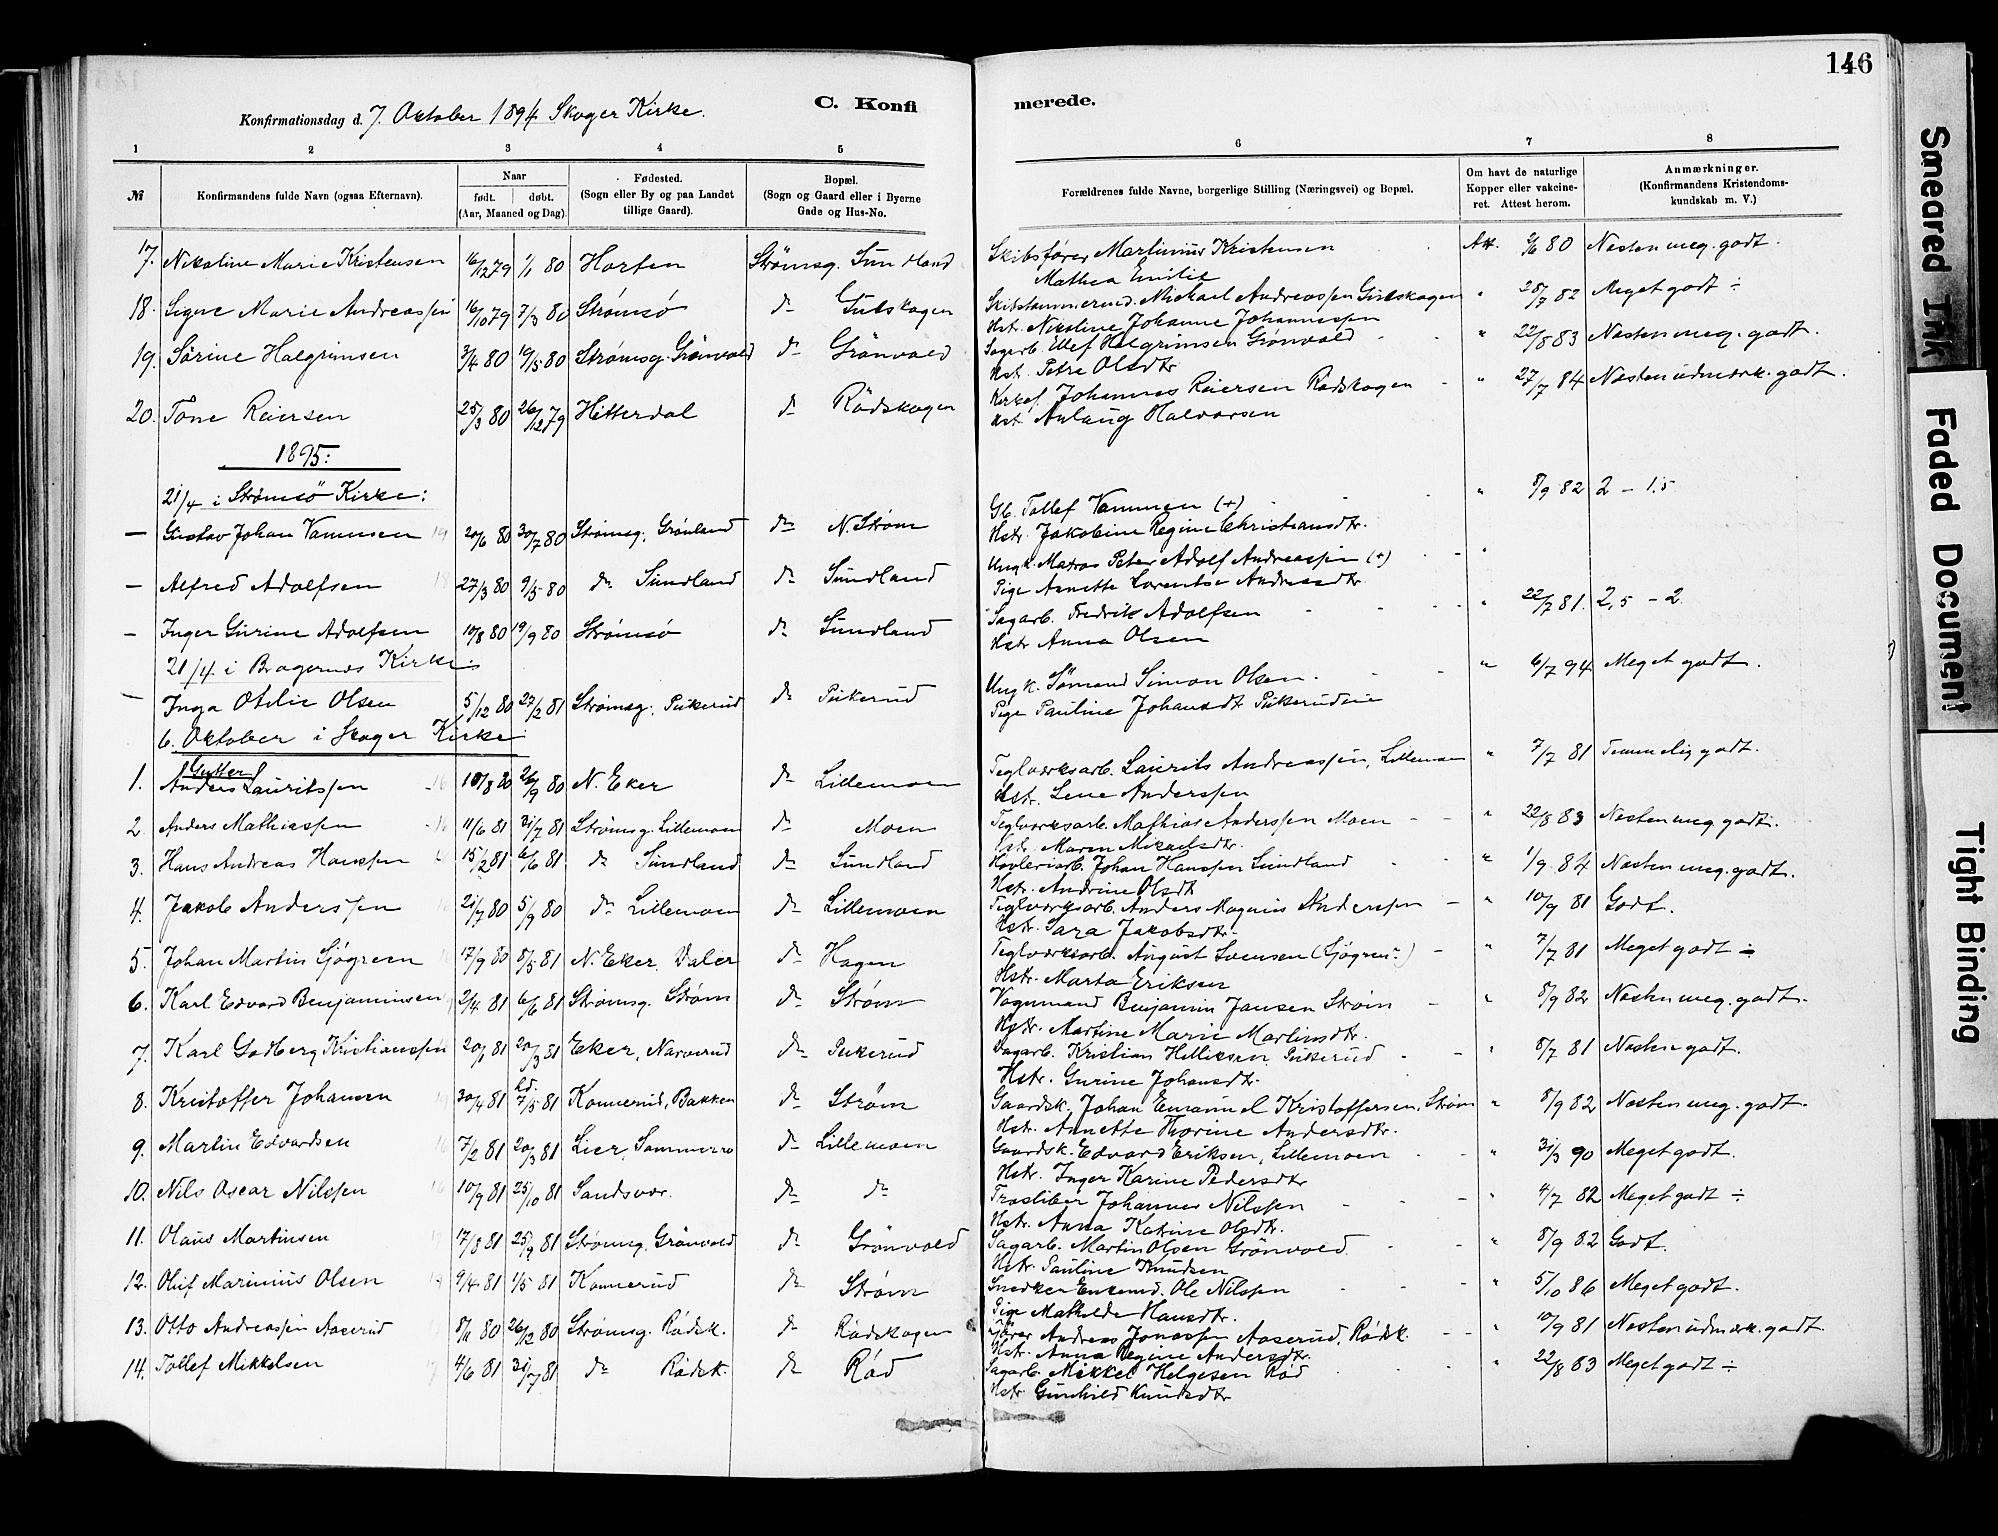 146
C. Konfi
merede.
Konfirmationsdag d. 7. Oktober 1894 Skoger Kirke.
1 2 3 4 5 6 7 8
№ Konfirmandens fulde Navn (ogsaa Efternavn). Naar født. døbt. (Aar, Maaned og Dag). Fødested. (Sogn eller By og paa Landet tillige Gaard). Bopæl. (Sogn og Gaard eller i Byerne Gade og Hus-No. Forældrenes fulde Navne, borgerlige Stilling (Næringsvei) og Bopæl. Om havt de naturlige Kopper eller vakcineret. Attest herom. Anmærkninger. (Konfirmandens Kristendomskundskab m. V.)
17. Nikoline Marie Kristensen 16/12 79 1/1 80 Horten Strømsg. Sundland Skibsfører Martinius Kristensen Att. 80 Næsten meg. godt.
Mathea Emilie
18. Signe Marie Andreassen 16/10 79 7/3 80 Strømsø do Gulskogen Mickael Andreassen Gulskogen " 28/7 82 Meget godt ÷
Hst. Nikoline Johanne Johannessen
19. Sørine Halgrimsen 3/4 80 19/5 80 Strømsg. Grønvold do Grönvold Sagarb. Ellef Halgrimsen Grönvold " 22/8 83 Næsten meg. godt.
Hst. Petra Olsdtr
20. Tone Reiersen 25/3 80 26/12 79 Hitterdal do Rödskogen Johannes Reiersen Rødskogen " 27/7 84 Næsten udmærk. godt.
Hst. Aslaug Halvorsen
1895:
21/4 i Strømsö Kirke:
— Gustav Johan Vammen 19 20/6 80 30/7 80 Strømsg, Grönland do N. Strøm Gb. Tollef Vammen (+) " 8/9 82 2 – 1.5
Hst. Jakobine Regine Christiansdtr.
— Alfred Adolfsen 27/3 80 9/5 80 do Sundland do Sundland Ungk. Matros Peter Adolf Andreassen (+) "
Pige Annette Lorentse Andreasdtr
— Inger Gurine Adolfsen 10/8 80 19/9 80 Strømsø do Sundland Sagarb. Fredrik Adolfsen " 22/7 81. 2,5 – 2
Hst. Anna Olsen
21/4 i Bragernes Kirke:
— Inga Otilie Olsen 5/12 80 27/2 81 Strømsg. Pukerud do Pukerud Ungk. Sømand Simon Olsen. " 6/7 94 Meget godt.
Pige Pauline Johansdt
6. Oktober i Skoger Kirke
Gutter
1. Anders Lauritssen 16 10/8 80 26/9 80 N. Eker do Lillemoen Teglværksarb. Laurits Andreassen, Lillemoen " 7/7 81 Temmelig godt.
Hst. Lene Anderssen
2. Anders Mathiassen 11/6 81 31/7 81 Strømsg. Lillemoen do Moen Teglværksarb. Mathias Anderssen Moen " 22/8 83 Næsten meg. godt.
Hst. Maren Mikaelsdtr.
3. Hans Andreas Hanssen 15/2 81 6/6 81 do Sundland do Sundland Høvleriarb. Johan Hanssen Sundland " 1/9 84 Næsten meg. godt.
Hst. Andrine Olsdt
4. Jakob Anderssen 21/7 80 5/9 80 do Lillemoen do Lillemoen Teglværksarb. Anders Magnus Anderssen " 10/9 81 Godt.
Hst. Sara Jakobsdtr.
5. Johan Martin Sjøgreen 17/9 80 8/5 81 N. Eker, Daler do Hagen Teglværksarb. August Svensen (Sjøgren) " 7/7 81 Meget godt ÷
Hst. Marta Eriksen
6. Karl Edvard Benjaminsen 2/4 81 6/6 81 Strømsg. Strøm do Strøm Vognmand Benjamin Jansen Strøm " 8/9 82 Næsten meg. godt.
Hst. Martine Marie Martinsdtr.
7. Karl Godberg Kristianssen 20/1 81 20/3 81 Eker, Narverud do Pukerud Dagarb. Kristian Helliksen Pukerud " 8/7 81 Næsten godt.
Hst. Gurine Johansdtr.
8. Kristoffer Johansen 30/4 81 hd. 7/5 81 Konnerud, Bakken do Strøm Gaardsk. Johan Emanuel Kristoffersen, Strøm " 8/9 82 Næsten meg. godt.
Hst. Annette Thorine Andersdtr.
9. Martin Edvardsen 7/2 81 20/3 81 Lier, Sommerro do Lillemoen Gaardsk. Edvard Eriksen, Lillemoen " 31/3 90 Meget godt.
Hst. Inger Karine Pedersdtr
10. Nils Oscar Nilssen 10/9 81 25/10 81 Sandsvær. do do Johannes Nilssen " 4/7 82 Meget godt ÷
Hst. Anna Katrine Olsdtr.
11. Olaus Martinsen 17/8 81 25/9 81 Strømsg. Grönvold do Grönvold Sagarb. Martin Olsen Grönvold " 8/9 82 Godt.
Hst. Pauline Knudsen
12. Oluf Marinius Olsen 9/4 81 1/5 81 Konnerud do Strøm Snedker Enkemd. Ole Nilssen " 5/10 86 Meget godt.
Pige Mathilde Hansdtr.
13. Otto Andreassen Aaserud 8/11 80 26/12 80 Strømsg. Rødsk. do Rødskogen Andreas Jonassen Aaserud, Rødsk. " 10/9 81 Næsten udmærk. godt.
Hst. Anna Regine Andersdtr.
14. Tollef Mikkelsen 4/6 81 31/7 81 do Rødsk. do Rød Sagarb. Mikkel Helgesen Rød " 22/8 83 Meget godt ÷
Hst. Gunhild Knudsdtr
Smeared Ink
Faded Document
Tight Binding